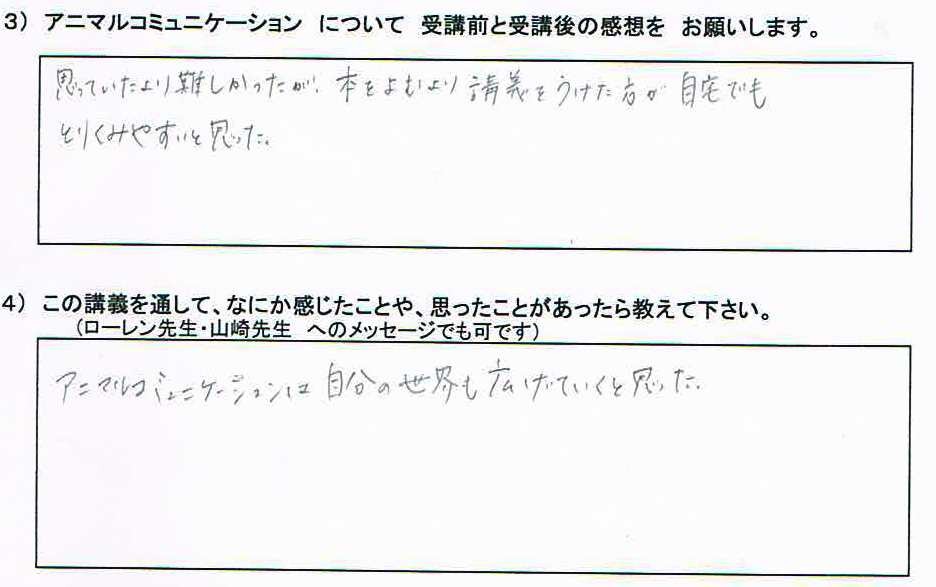 3）アニマルコミュニケーション　について　受講前と受講後の感想を　お願いします。
思っていたより難しかったが、本をよむより講義をうけた方が自宅でも
とりくみやすいと思った。
4）この講義を通して、なにか感じたことや、思ったことがあったら教えて下さい。
（ローレン先生・山崎先生　へのメッセージでも可です）
アニマルコミュニケーションは自分の世界も広げていくと思った。